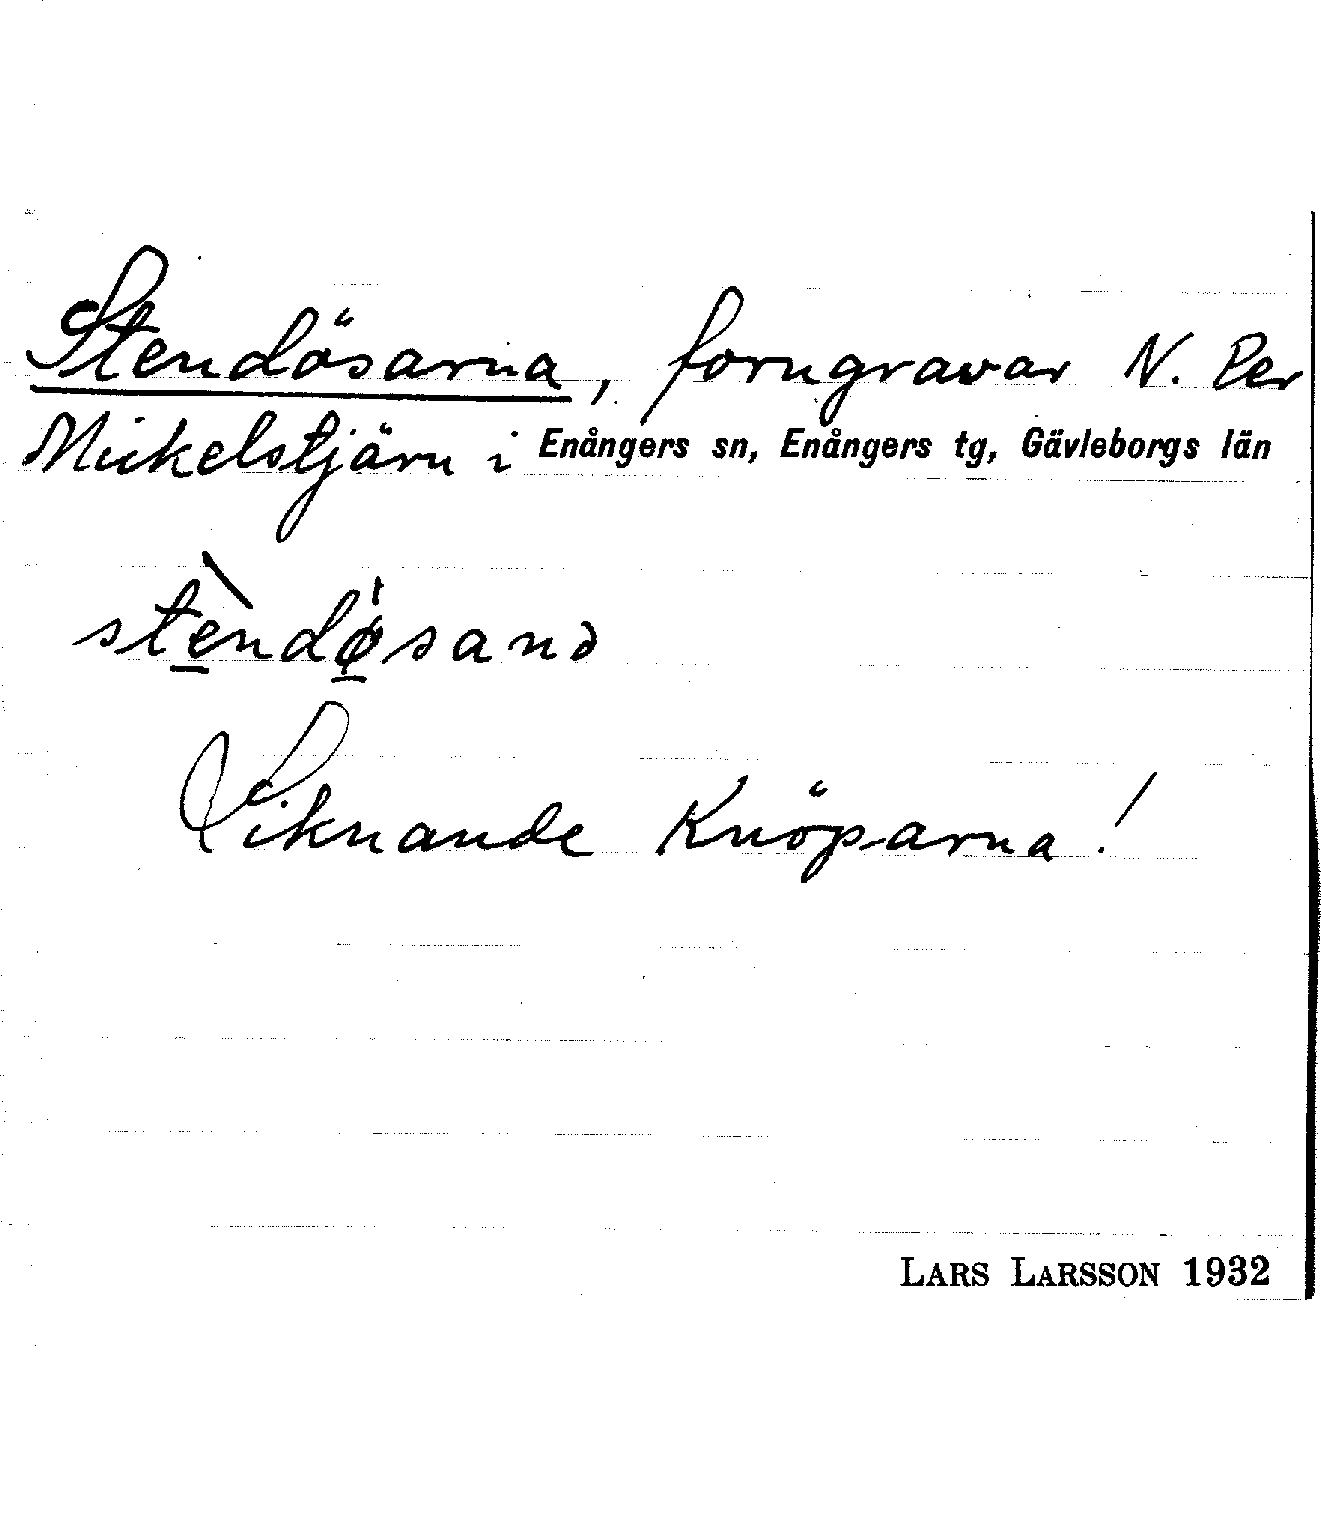 Stendösarna, forngravar N. Per
Mickelstjärn i Enångers sn, Enångers tg, Gävleborgs län
stè̱ndø̱̍sanə
Liknande Knöparna!
LARS LARSSON 1932